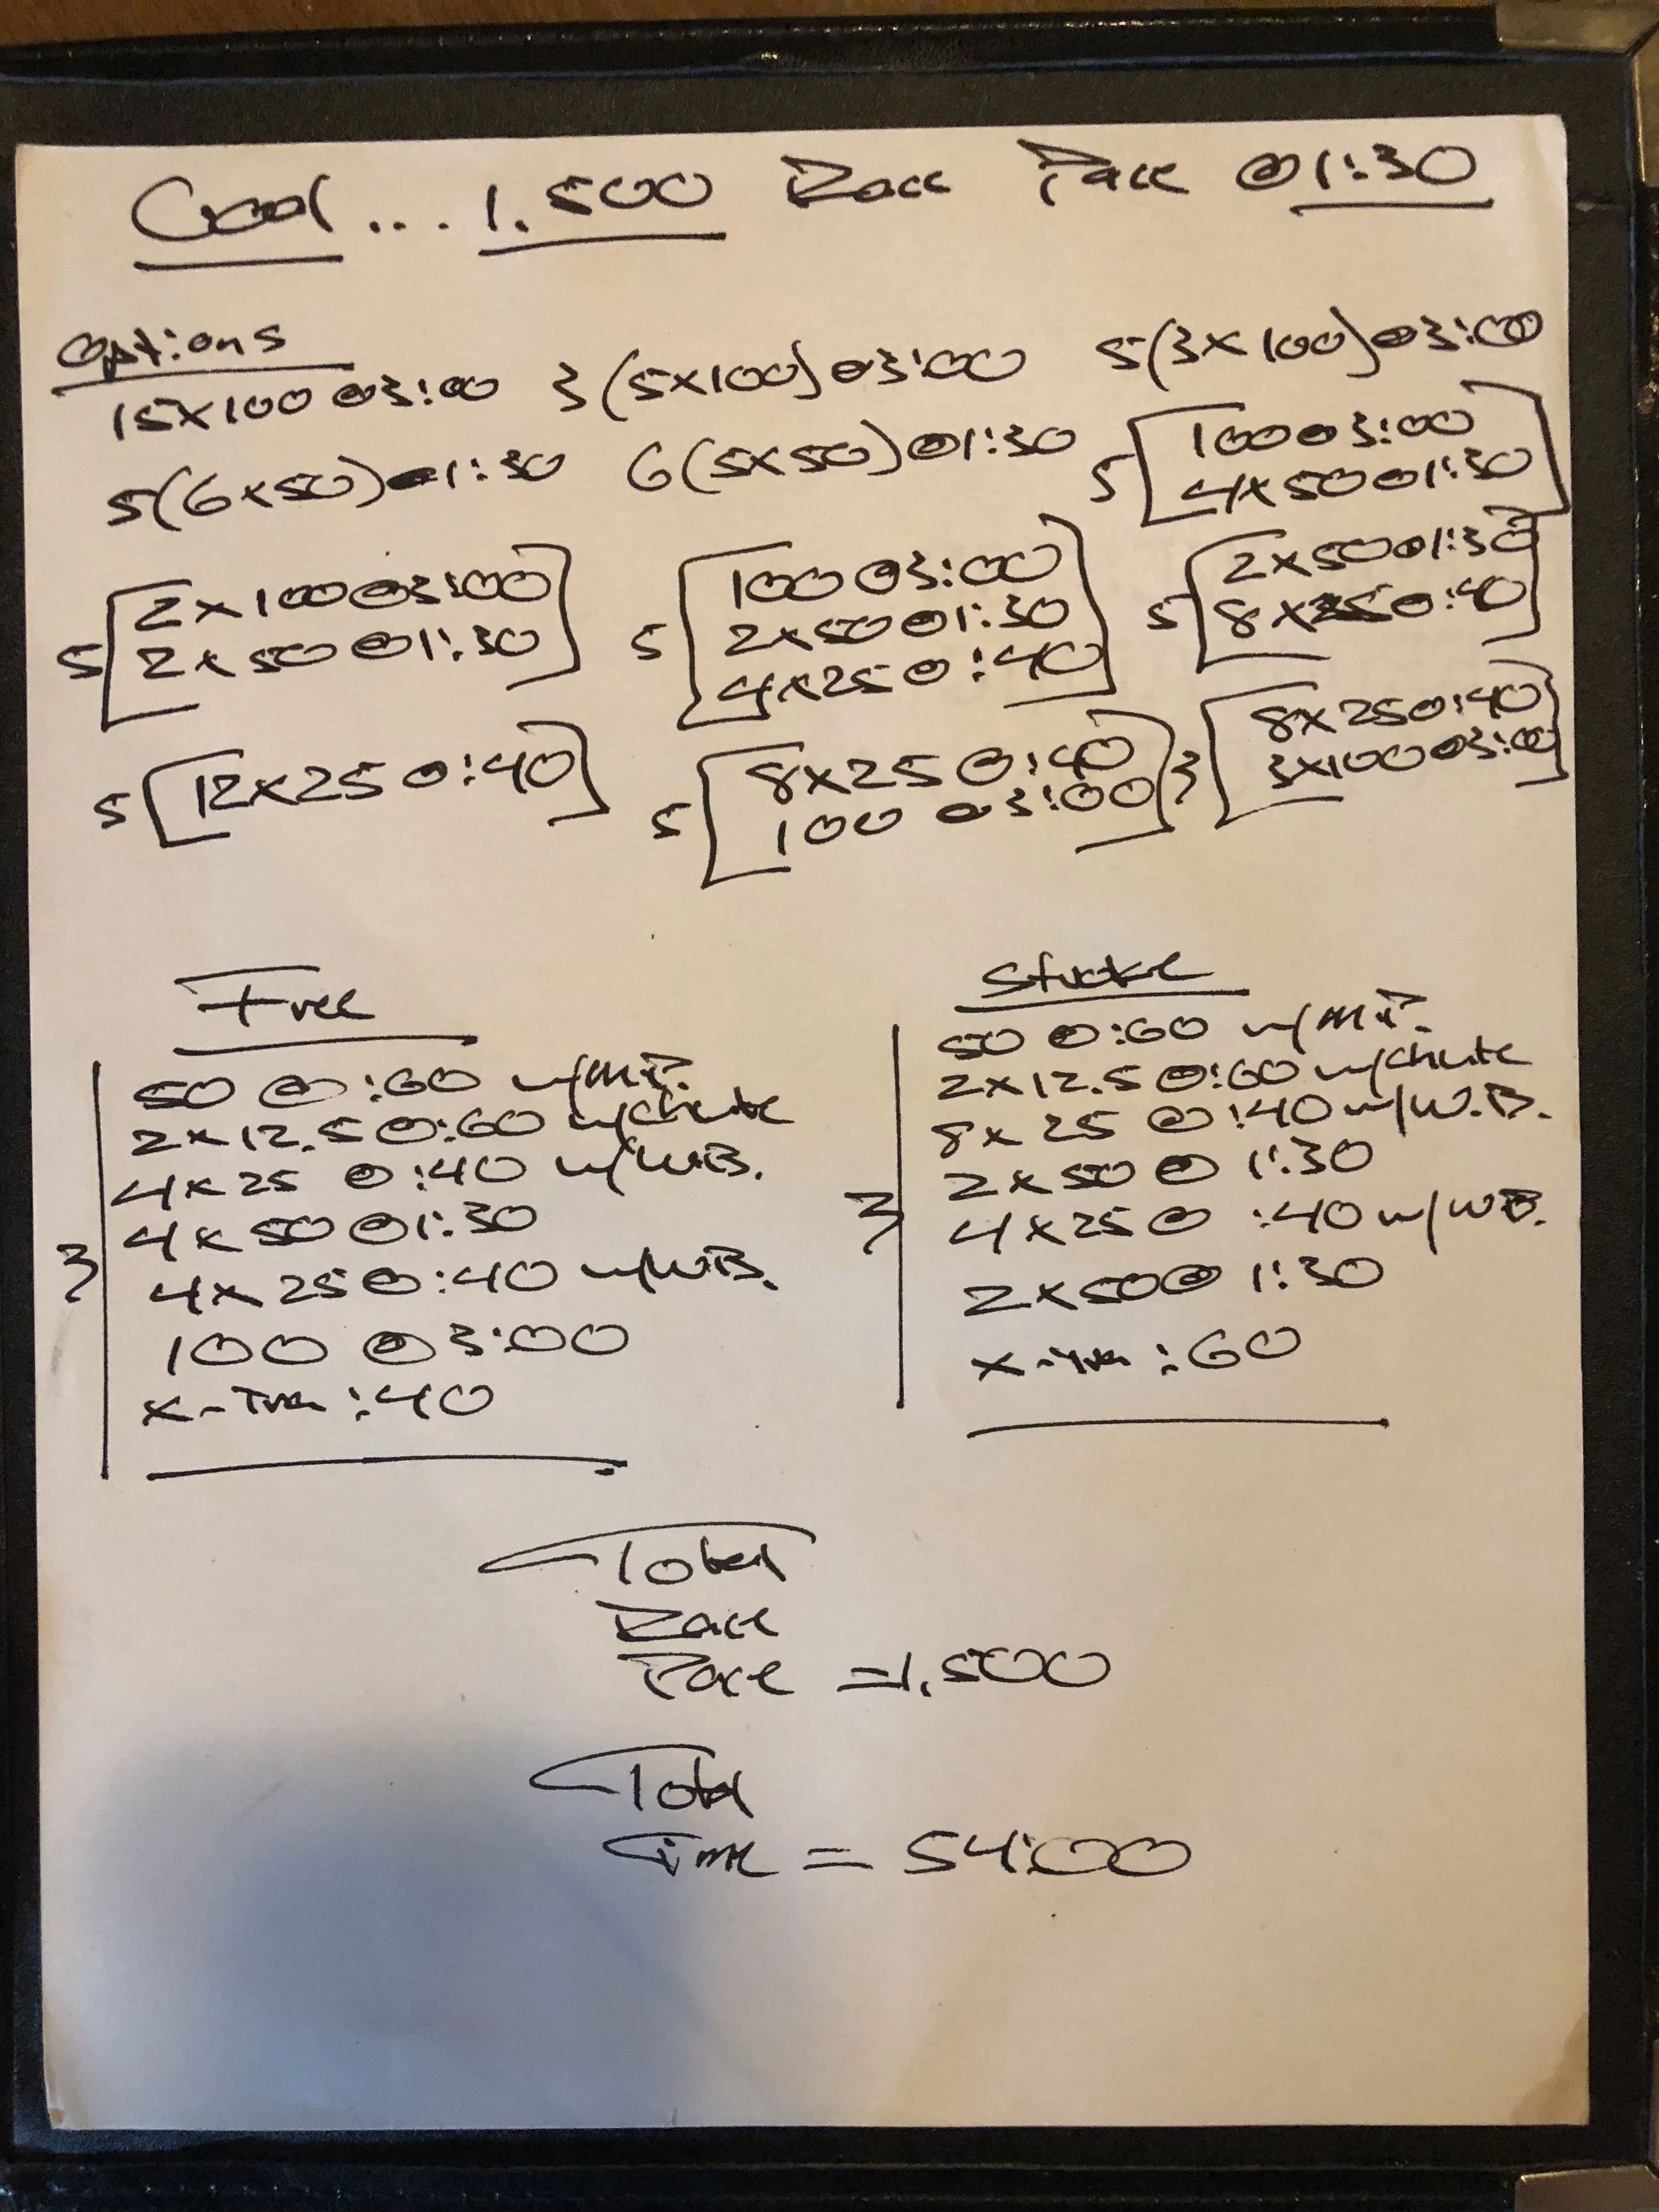 Goal... 1,500 Race Pace @ 1:30
Options
15x100 @ 3:00 3(5x100) @ 3:00 5(3x100) @ 3:00
5(6x50) @ 1:30 6(5x50) @ 1:30 5[100 @ 3:00
4x50 @ 1:30]
5[2x100 @ 3:00
2x50 @ 1:30]
5[100 @ 3:00
2x50 @ 1:30
4x25 @ :40]
5[2x50 @ 1:30
8x25 @ :40]
5[12x25 @ :40]
5[8x25 @ :40
100 @ 3:00]
3[8x25 @ :40
3x100 @ 3:00]
Free
50 @ :60 w/M.P.
2x12.5 @ :60 w/chute
4x25 @ :40 w/W.B.
4x50 @ 1:30
3
4x25 @ :40 w/W.B.
100 @ 3:00
x-tra :40
Stroke
50 @ :60 w/M.P.
2x12.5 @ :60 w/chute
8x25 @ :40 w/W.B.
2x50 @ 1:30
3
4x25 @ :40 w/W.B.
2x50 @ 1:30
x-tra :60
Total
Race
Pace = 1,500
Total
Time = 54:00